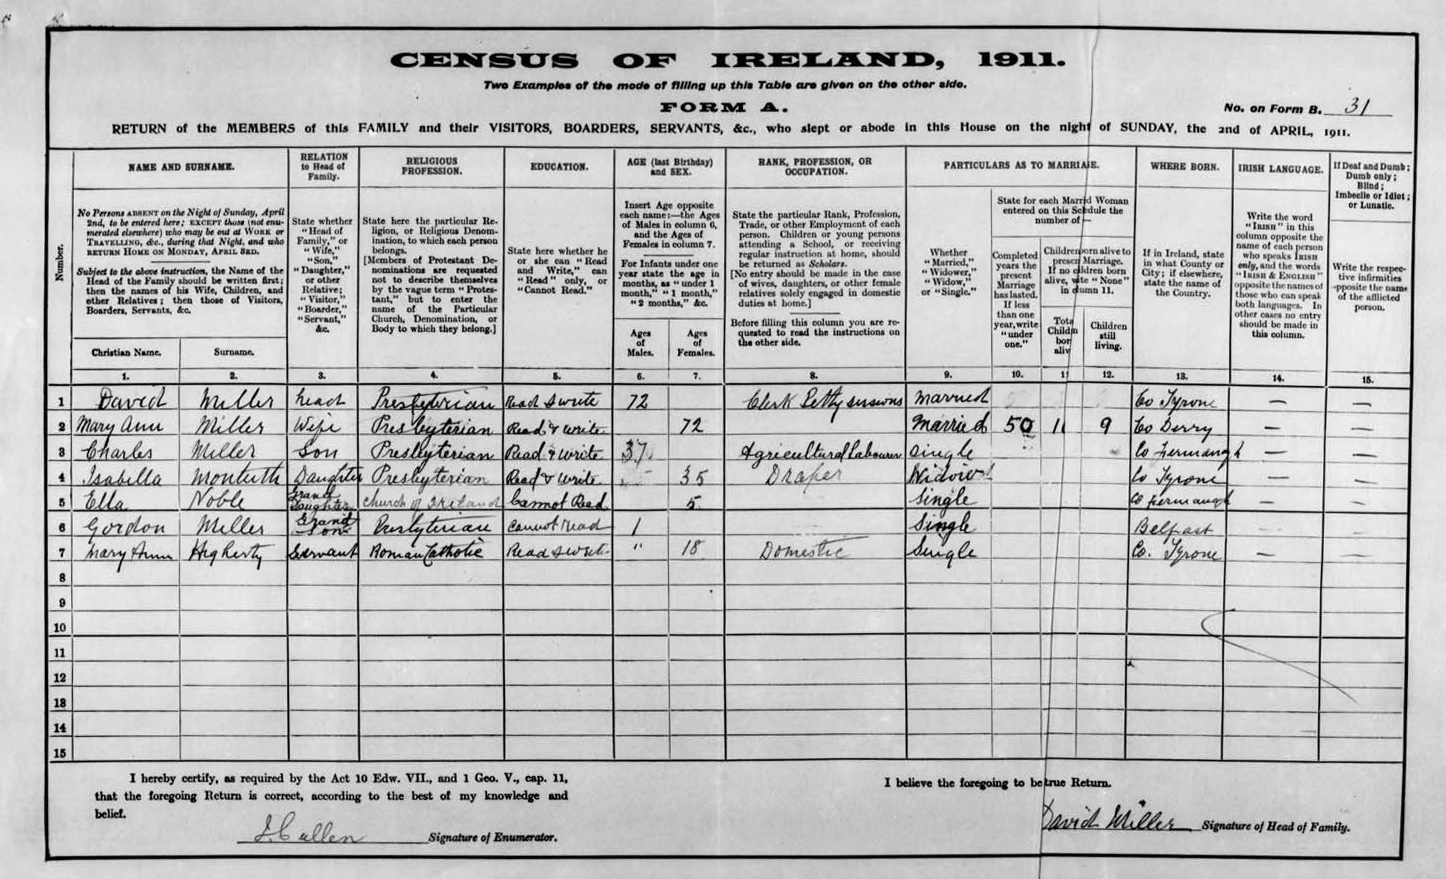 CENSUS OF IRELAND, 1911.
Two Examples of the mode of filling up this Table are given on the other side.
FORM A.
No. on Form B. 31
RETURN of the MEMBERS of this FAMILY and their VISITORS, BOARDERS, SERVANTS, &c., who slept or abode in this House on the night of SUNDAY, the 2nd of APRIL, 1911.
Number.
NAME AND SURNAME.
No Persons ABSENT on the Night of Sunday, April
2nd, to be entered here; EXCEPT those (not enu-
merated elsewhere) who may be out at WORK or
TRAVELLING, &c., during that Night, and who
RETURN HOME ON MONDAY, APRIL 3RD.
Subject to the above instruction, the Name of the
Head of the Family should be written first;
then the names of his Wife, Children, and
other Relatives; then those of Visitors,
Boarders, Servants, &c.
Christian Name.
Surname.
1.
2.
RELATION
to Head of
Family.
State whether
"Head of
Family," or
"Wife,"
"Son,"
"Daughter,"
or other
Relative;
"Visitor,"
"Boarder,"
"Servant,"
&c.
3.
RELIGIOUS
PROFESSION.
State here the particular Re-
ligion, or Religious Denom-
ination, to which each person
belongs.
[Members of Protestant De-
nominations are requested
not to describe themselves
by the vague term "Protes-
tant," but to enter the
name of the Particular
Church, Denomination, or
Body to which they belong.]
4.
EDUCATION.
State here whether he
or she can "Read
and Write," can
"Read" only, or
"Cannot Read."
5.
AGE (last Birthday)
and SEX.
Insert Age opposite
each name:—the Ages
of Males in column 6,
and the Ages of
Females in column 7.
For Infants under one
year state the age in
months, as "under 1
month," "1 month,"
"2 months," &c.
Ages
of
Males.
Ages
of
Females.
6.
7.
RANK, PROFESSION, OR
OCCUPATION.
State the particular Rank, Profession,
Trade, or other Employment of each
person. Children or young persons
attending a School, or receiving
regular instruction at home, should
be returned as Scholars.
[No entry should be made in the case
of wives, daughters, or other female
relatives solely engaged in domestic
duties at home.]
Before filling this column you are re-
quested to read the instructions on
the other side.
8.
PARTICULARS AS TO MARRIAGE.
Whether
"Married,"
"Widower,"
"Widow,"
or "Single."
9.
State for each Married Woman
entered on this Schedule the
number of—
Completed
years the
present
Marriage
has lasted.
If less
than one
year, write
"under
one."
10.
Children born alive to
present Marriage.
If no children born
alive, write "None"
in column 11.
Total
Children
born
alive
11
Children
still
living.
12.
WHERE BORN.
If in Ireland, state
in what County or
City; if elsewhere,
state the name of
the Country.
13.
IRISH LANGUAGE.
Write the word
"IRISH" in this
column opposite the
name of each person
who speaks IRISH
only, and the words
"IRISH & ENGLISH"
opposite the names of
those who can speak
both languages. In
other cases no entry
should be made in
this column.
14.
If Deaf and Dumb;
Dumb only;
Blind;
Imbecile or Idiot;
or Lunatic.
Write the respec-
tive infirmities
opposite the name
of the afflicted
person.
15.
1 David Miller head Presbyterian Read & write 72 Clerk Petty sessions married Co Tyrone — —
2 Mary Ann Miller Wife Presbyterian Read & write 72 Married 50 11 9 Co Derry — —
3 Charles Miller Son Presbyterian Read & write 37 Agricultural Labourer single Co Fermanagh — —
4 Isabella Monteith Daughter Presbyterian Read & write 35 Draper Widow Co Tyrone — —
5 Ella Noble Grand Daughter Church of Ireland Cannot Read 5 Single Co Fermanagh — —
6 Gordon Miller Grand Son Presbyterian Cannot read 1 Single Belfast — —
7 Mary Ann Hegherty Servant Roman Catholic Read & write " 18 Domestic Single Co. Tyrone — —
8
9
10
11
12
13
14
15
I hereby certify, as required by the Act 10 Edw. VII., and 1 Geo. V., cap. 11,
that the foregoing Return is correct, according to the best of my knowledge and
belief.
J. Cullen Signature of Enumerator.
I believe the foregoing to be true Return.
David Miller Signature of Head of Family.